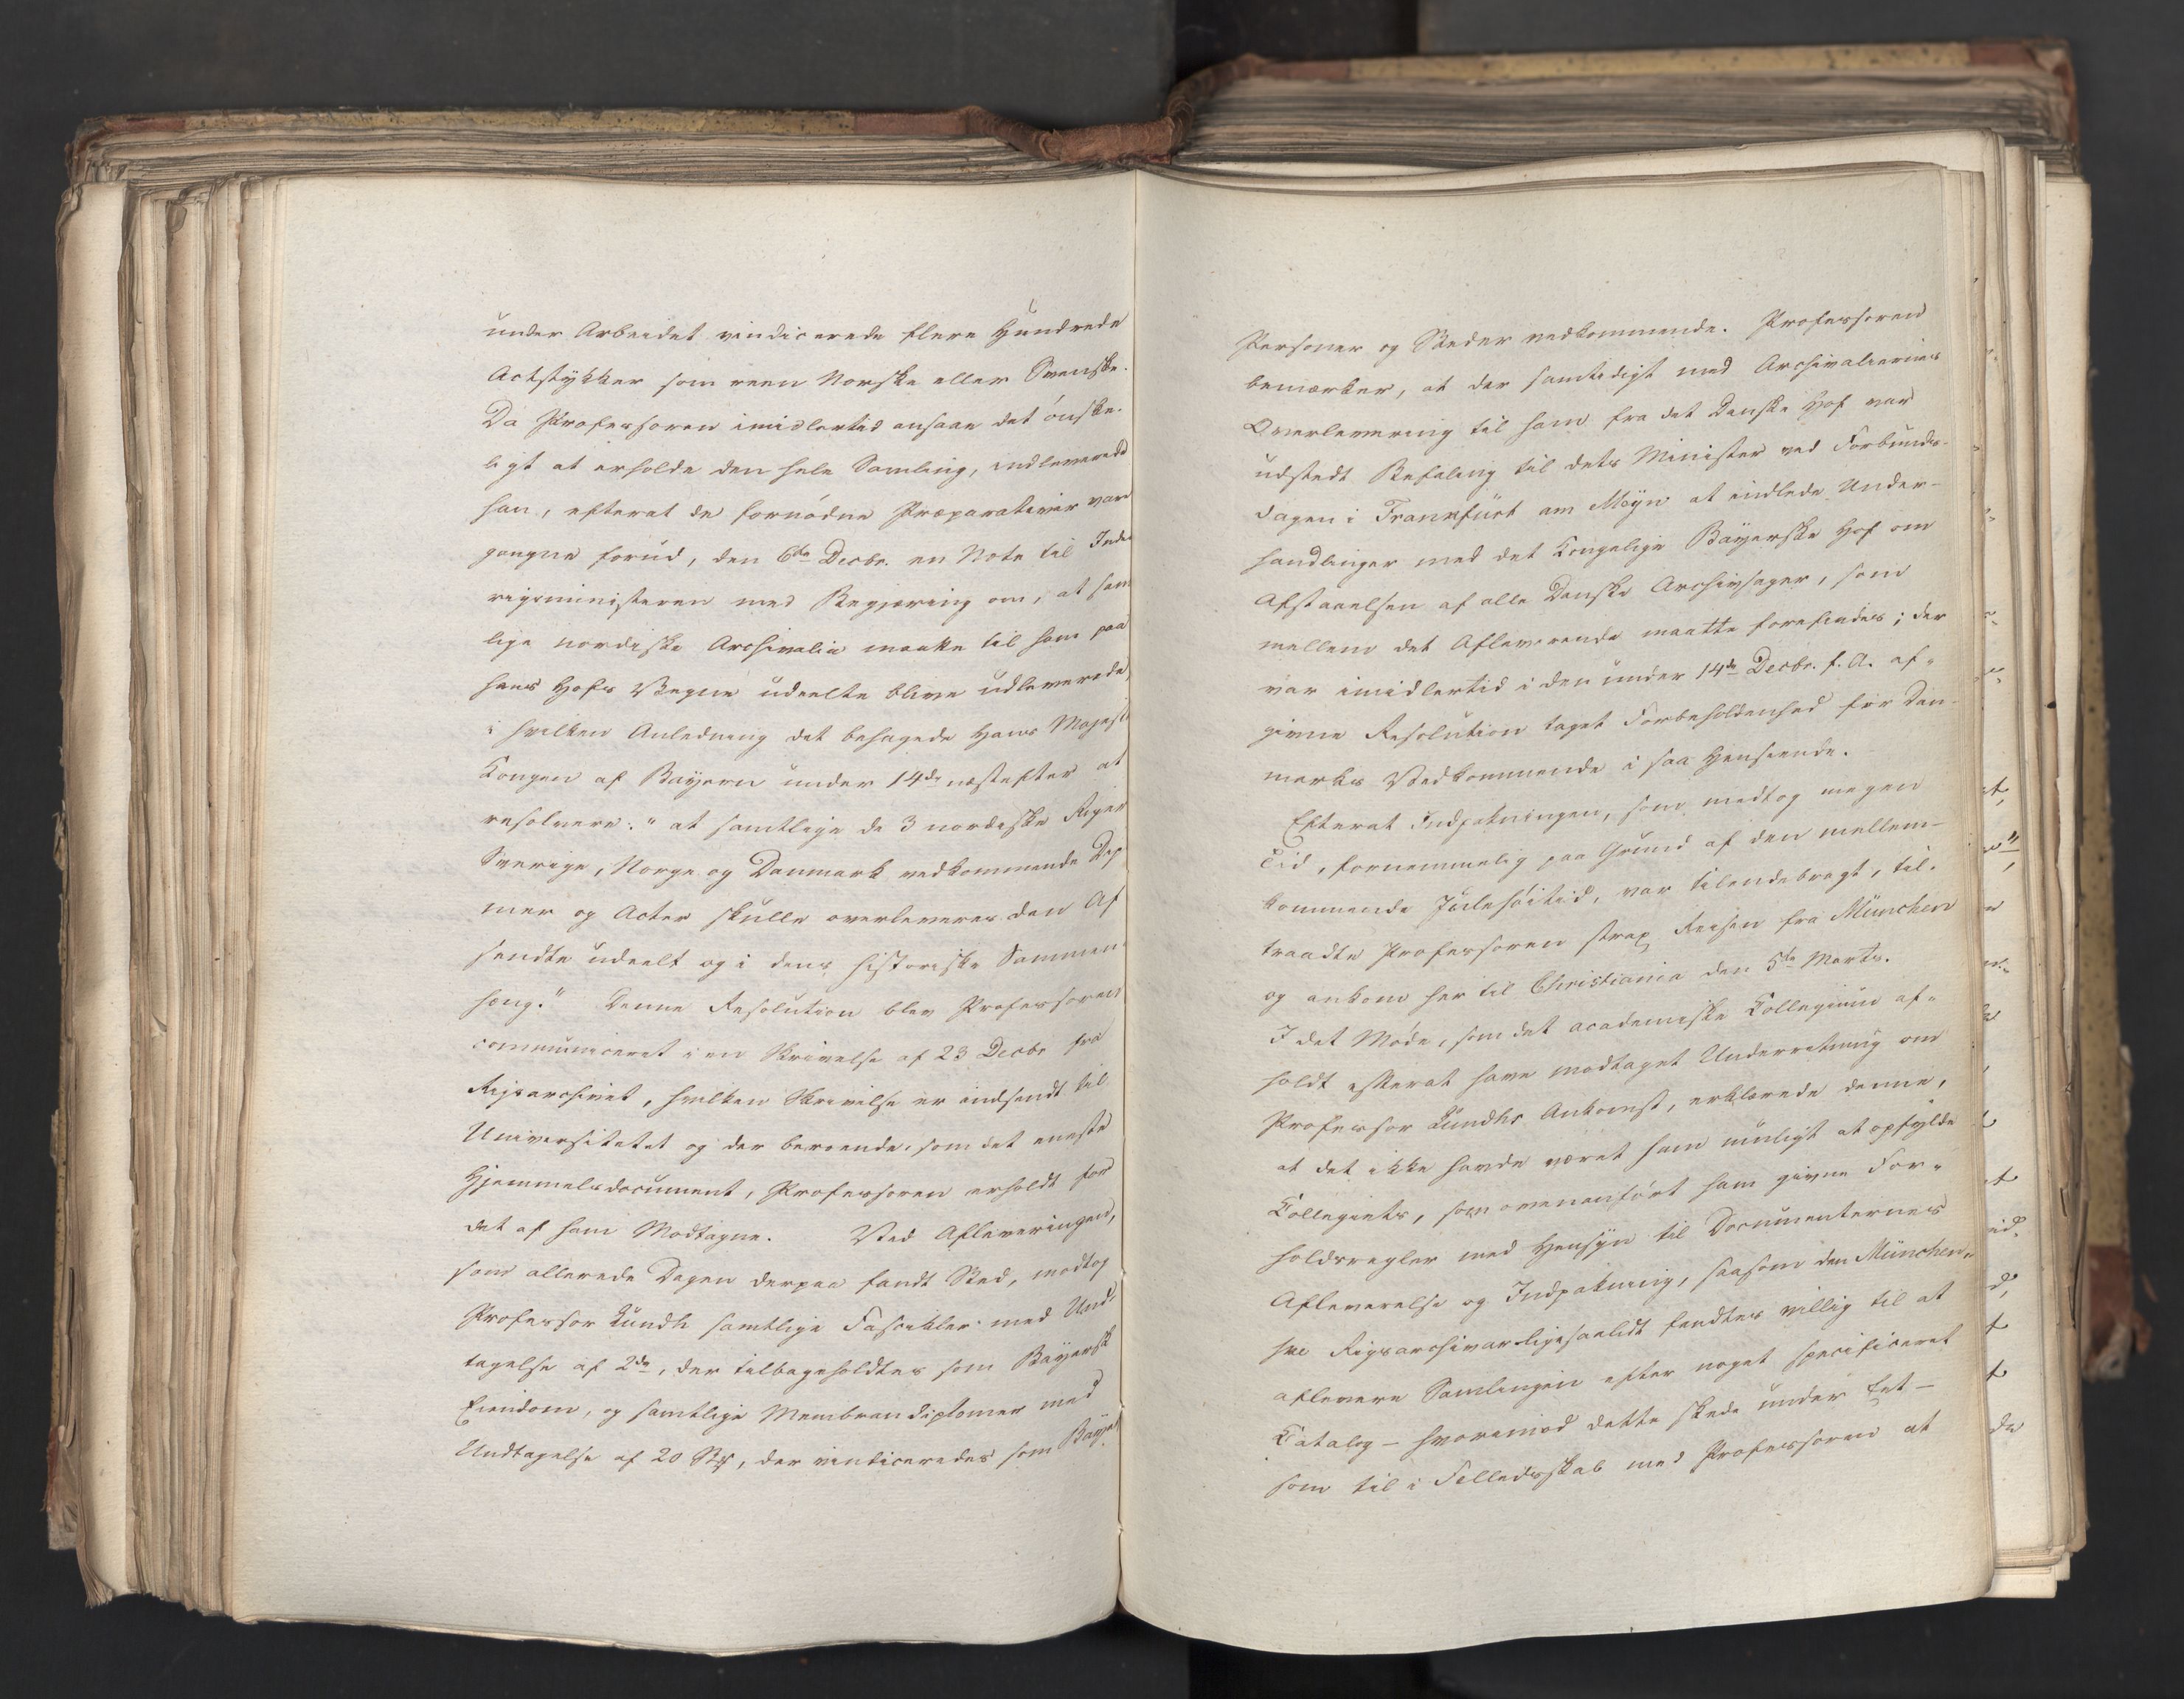 under Arbeidet vindicerede flere Hundrede
Actstykker som reen Norske eller Svenske.
Da Professoren imidlertid ansaae det ønske-
ligt at erholde den hele Samling, indleverede
han, efterat de fornødne Præparativer vare
gangne forud, den 6te Decbr. en Note til Inde
rigsministeren med Begjæring om, at sam
lige nordiske Archivalia maatte til ham paa
hans Hofs Vegne udeelte blive udleverede,
i hvilken Anledning det behagede Hans Majest
Kongen af Bayern under 14de næstefter at
resolvere: "at samtlige de 3 nordiske Riger
Sverige, Norge og Danmark vedkommende Dip
mer og Acter skulle overleveres den Af
sendte udeelt og i dens historiske Sammen
hæng." Denne Resolution blev Professoren
communiceret i en Skrivelse af 23 Decbr fra
Rigsarchivet, hvilken Skrivelse er indsendt til
Universitetet og der beroende, som det eneste
Hjemmelsdocument, Professoren erholdt for
det af ham Modtagne. Ved Afleveringen,
som allerede Dagen derpaa fandt Sted, modtog
Professor Lundh samtlige Fascikler med Und-
tagelse af 2de, der tilbageholdtes som Bayersk
Eiendom, og samtlige Membrandiplomer med
Undtagelse af 20 St, der vindiceredes som Bayer
Personer og Steder vedkommende. Professoren
bemærker, at der samtidigt med Archivaliernes
Overlevering til ham fra det Danske Hof var
udstedt Befaling til dets Minister ved Forbunds-
dagen i Frankfurt am Mayn at indlede Under-
handlinger med det Kongelige Bayerske Hof om
Afstaaelsen af alle Danske Archivsager, som
mellem det Afleverende maatte forefindes; der
var imidlertid i den under 14de Decbr. f. A. af-
givne Resolution taget Forbeholdenhed for Dan-
marks Vedkommende i saa Henseende.
Efterat Indpakningen, som medtog megen
Tid, fornemmelig paa Grund af den mellem-
kommende Julehøitid, var tilendebragt, til-
traadte Professoren strax Reisen fra München
og ankom her til Christiania den 5te Marts.
I det Møde, som det academiske Collegium af-
holdt efterat have modtaget Underretning om
Professor Lundhs Ankomst, erklærede denne,
at det ikke havde været ham muligt at opfylde
Collegiets, som ovenanført ham givne For-
holdsregler med Hensyn til Documenternes
Afleverelse og Indpakning, saasom den München-
ske Rigsarchivar ligesaalidt fandtes villig til at
aflevere Samlingen efter noget specificeret
Catalog – hvorimod dette skede under Eet –
som til i Fælledsskab med Professoren at